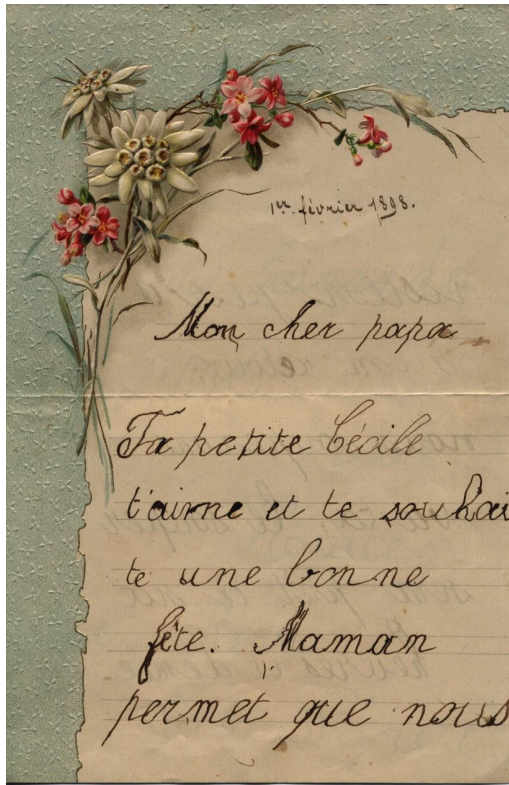 1er février 1898.
Mon cher papa
Ta petite Cécile
t'aime et te souhai
te une bonne
fête. Maman
permet que nous